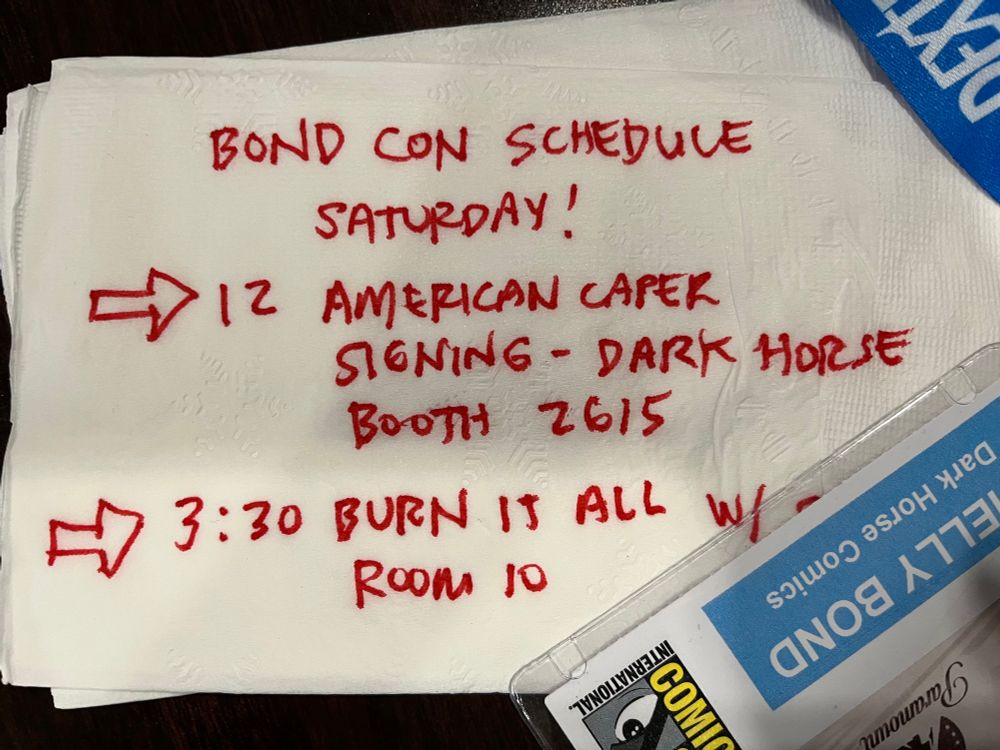 BOND CON SCHEDULE
SATURDAY!
12 AMERICAN CAPER
SIGNING - DARK HORSE
BOOTH 2615
3:30 BURN IT ALL W/
ROOM 10
ELLY BOND
Dark Horse Comics
COMIC
INTERNATIONAL
Paramount